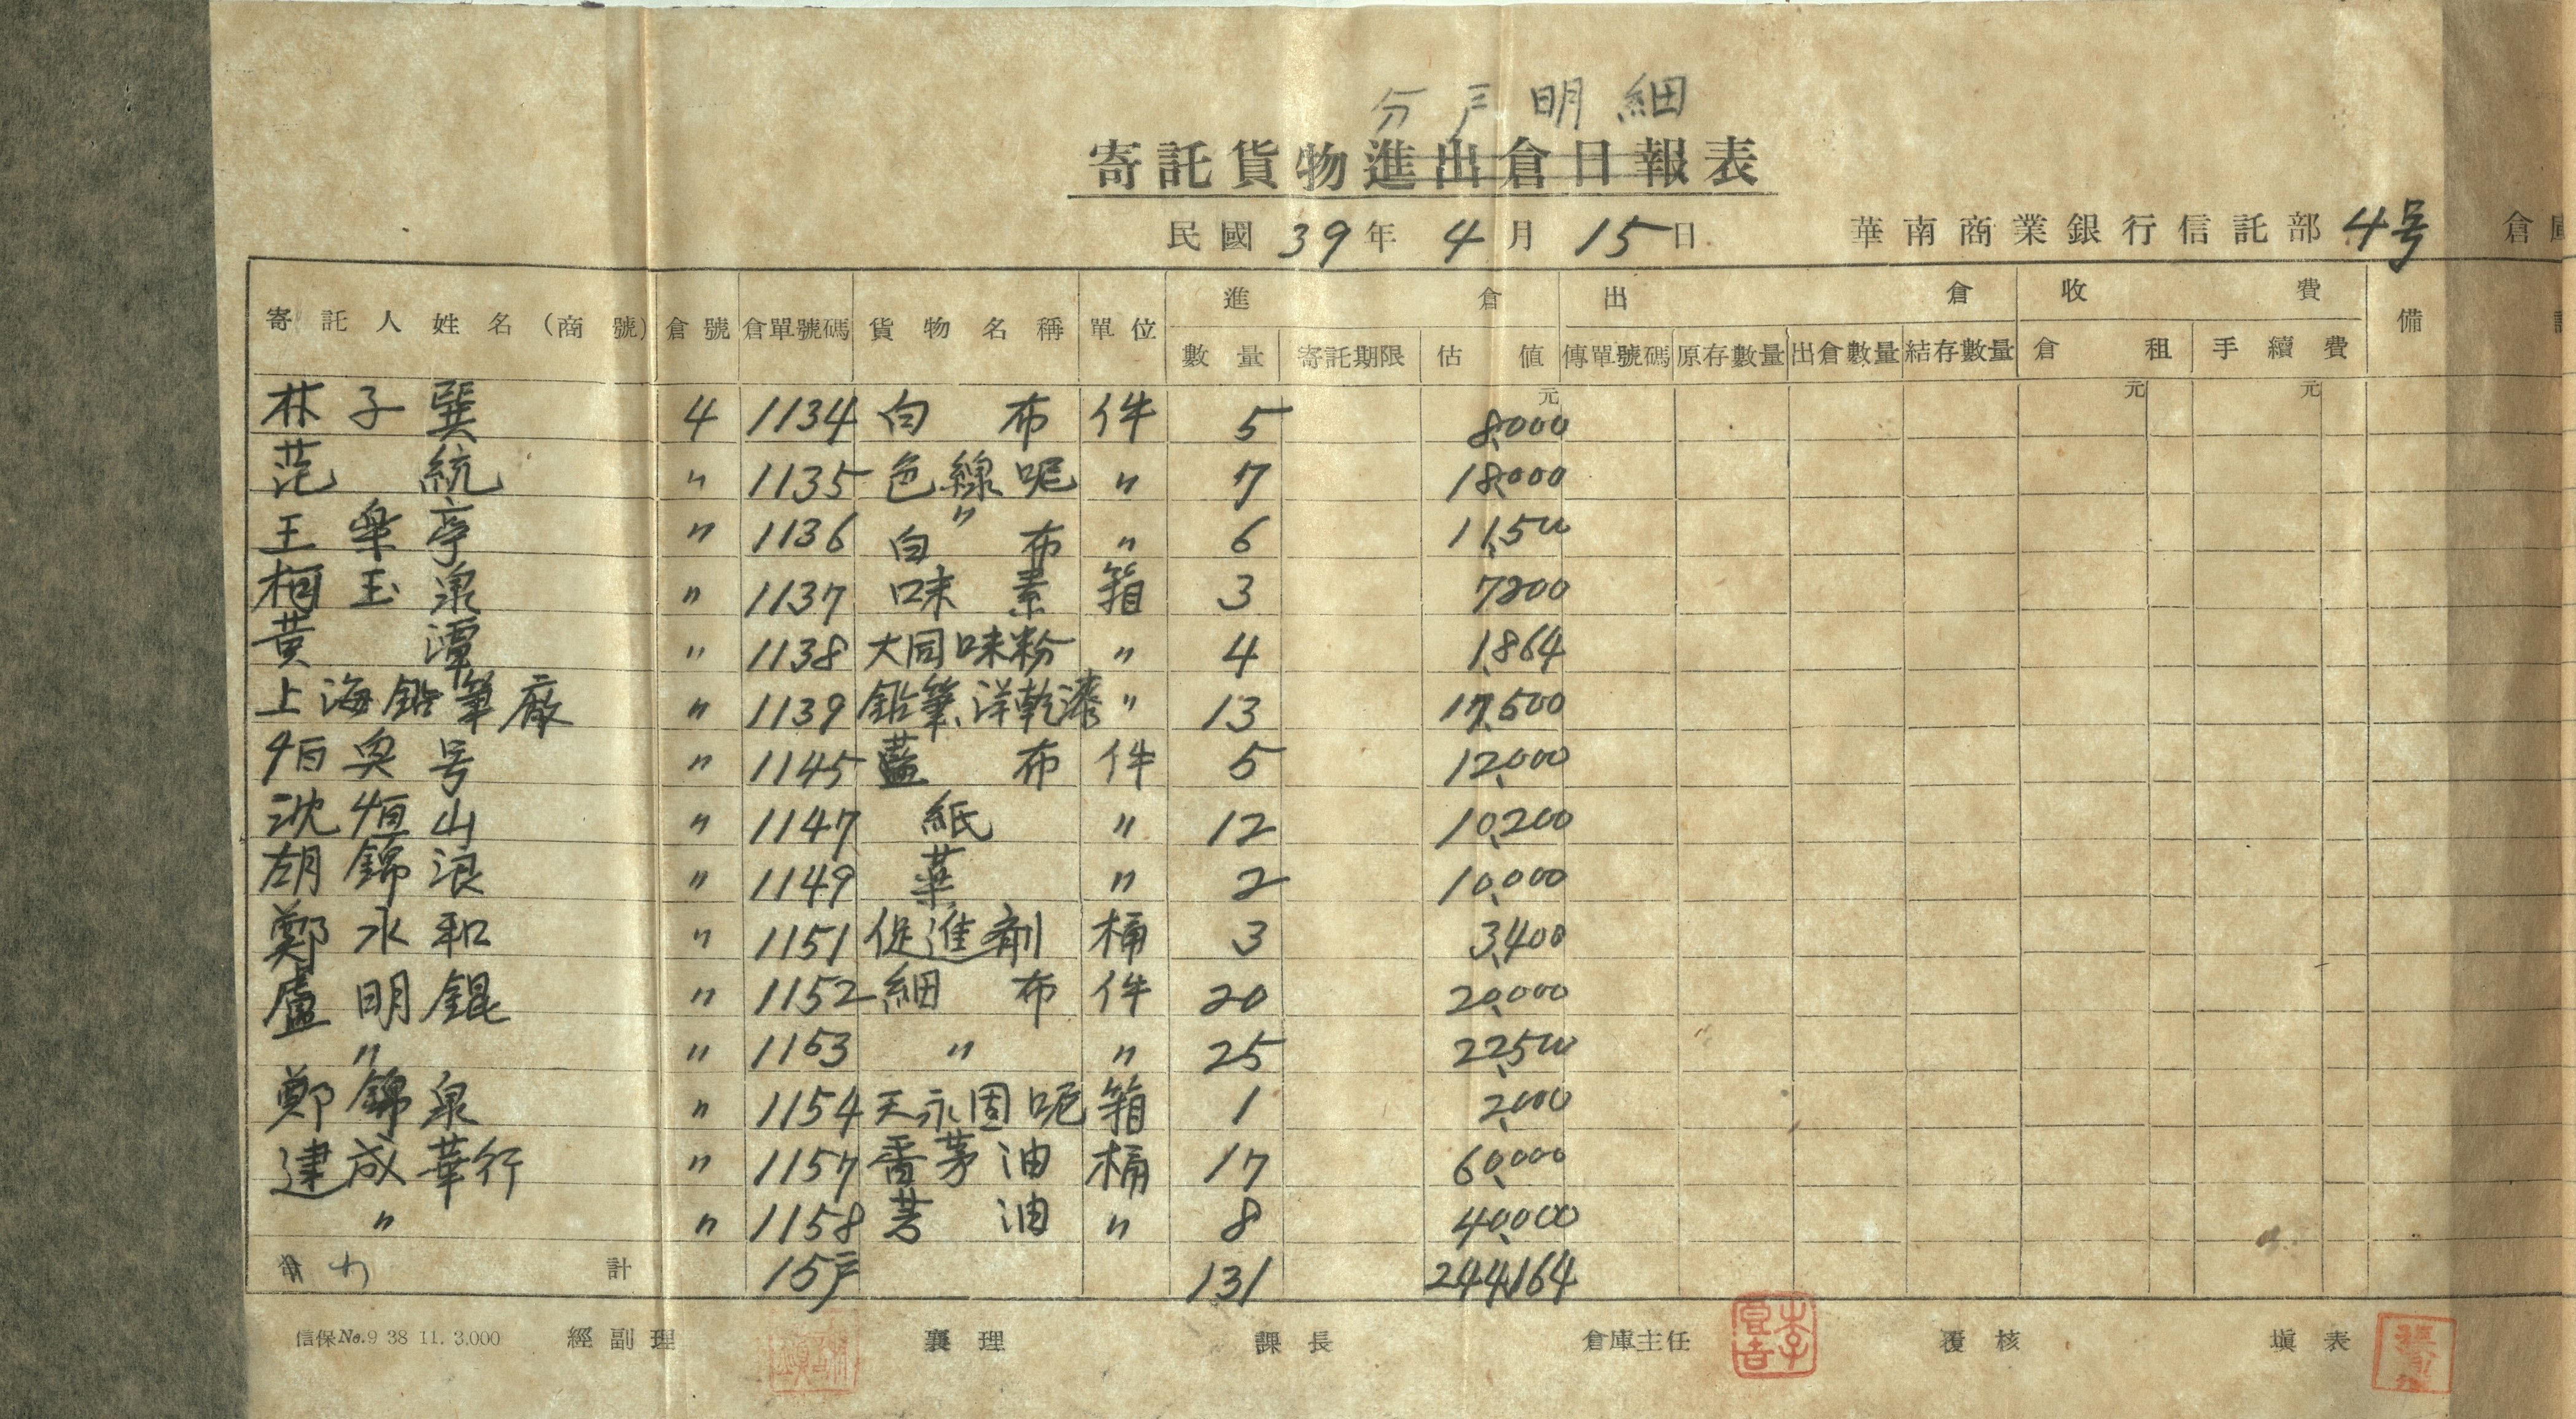 分戶明細
寄託貨物進出倉日報表
民國39年4月15日 華南商業銀行信託部4号倉庫
寄託人姓名(商號) 倉號 倉單號碼 貨物名稱 單位 進倉 出倉 收費 備
數量 寄託期限 估值 傳單號碼 原存數量 出倉數量 結存數量 倉租 手續費
元 元 元
林子巽 4 1134 白布 件 5 8,000
范統 〃 1135 色線呢 〃 7 18,000
王樂亭 〃 1136 白〃布 〃 6 11,500
柯玉泉 〃 1137 味素 箱 3 7200
黃潭 〃 1138 大同味粉 〃 4 1,864
上海鉛筆廠 〃 1139 鉛筆、洋乾漆 〃 13 17,500
恒奥号 〃 1145 藍布 件 5 12,000
沈恒山 〃 1147 紙 〃 12 10,200
胡錦浪 〃 1149 葉 〃 2 10,000
鄭永和 〃 1151 促進劑 桶 3 3,400
盧明錕 〃 1152 細布 件 20 20,000
〃 〃 1153 〃 〃 25 22,500
鄭錦泉 〃 1154 天永固呢 箱 1 2,000
建成華行 〃 1157 香茅油 桶 17 60,000
〃 〃 1158 芳油 〃 8 40,000
計 15戶 131 244,164
信保No.9 38 11. 3.000 經副理 襄理 課長 倉庫主任 覆核 填表